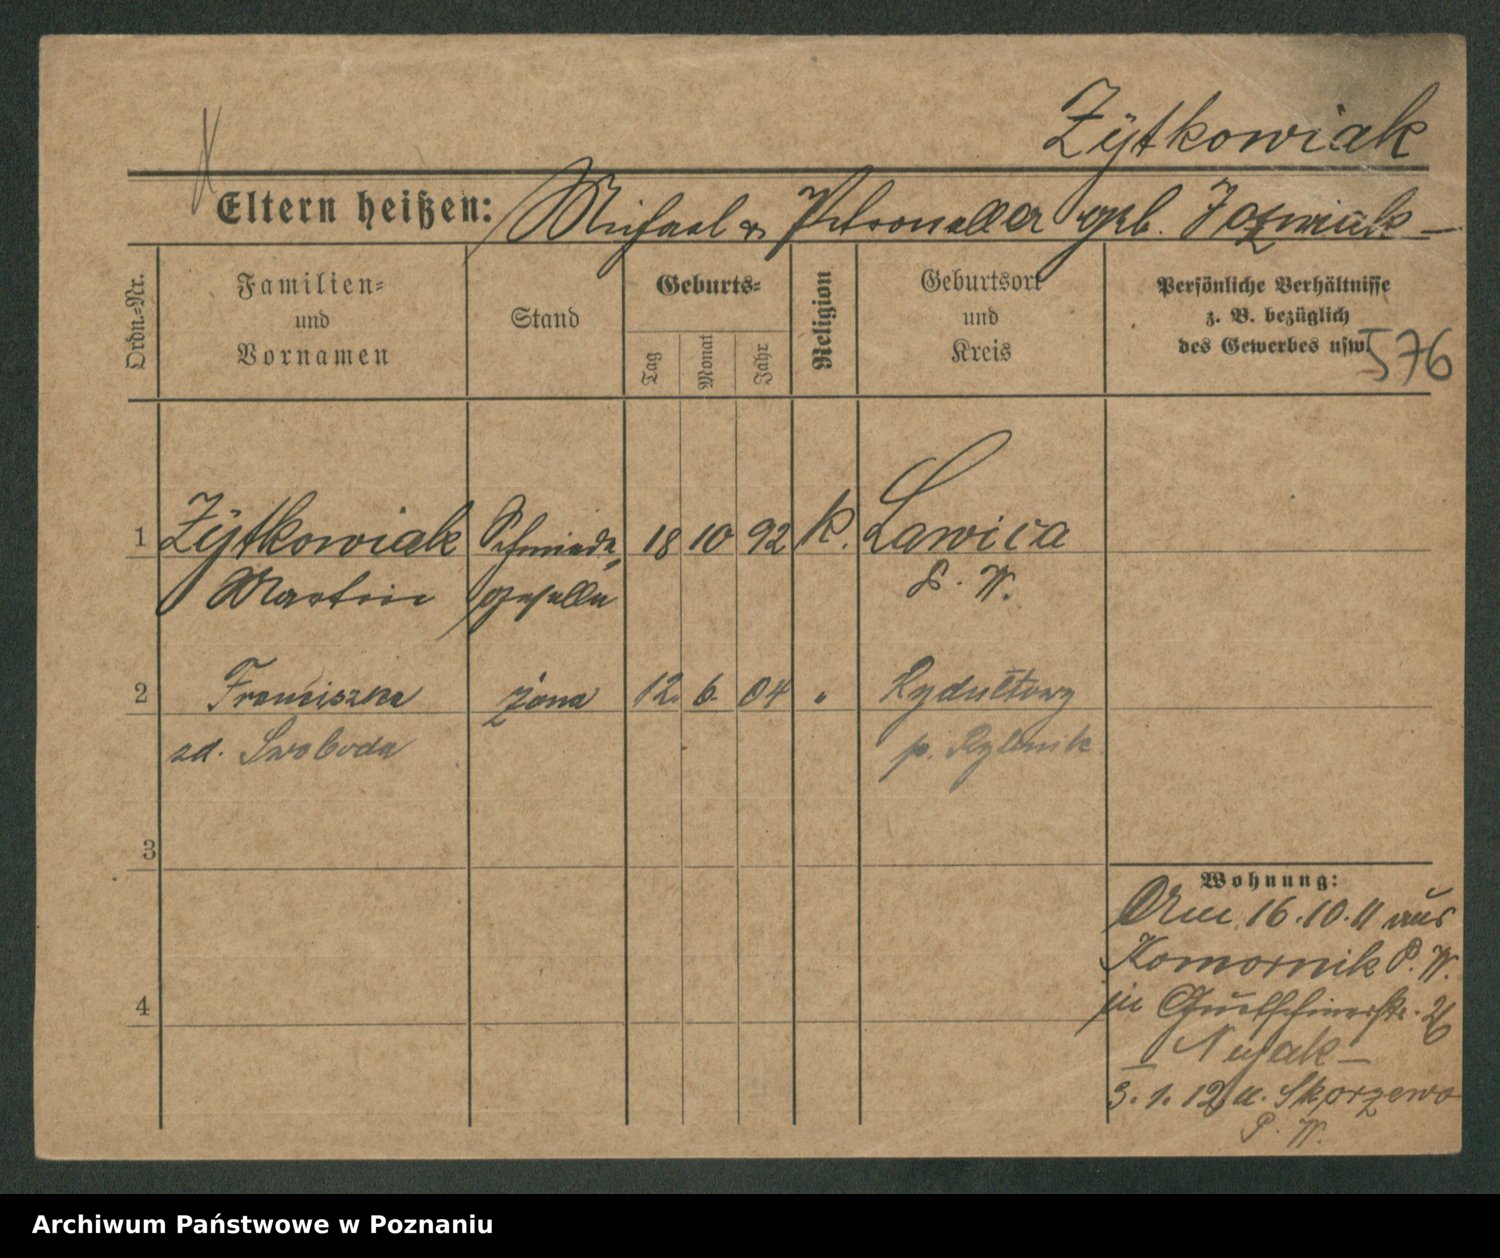 Zÿtkowiak
Eltern heißen: Michael & Petronella geb. Jozwiak
Ordn.-Nr.
Familien- und Vornamen
Stand
Geburts-
Tag
Monat
Jahr
Religion
Geburtsort und Kreis
Persönliche Verhältnisse
z. B. bezüglich
des Gewerbes usw.
576
1 Zÿtkowiak Schmiede- 18 10 92 k. Lawica
Martin geselle P. W.
2 Franciszka żona 12. 6. 04 " Rydułtowy
zd. Swoboda p. Rybnik
3
4
Wohnung:
Am 16.10.11 aus
Komornik P. W.
in Gurtschinerstr. 26
3.1.12 a. Skorzewo
P. W.
Archiwum Państwowe w Poznaniu